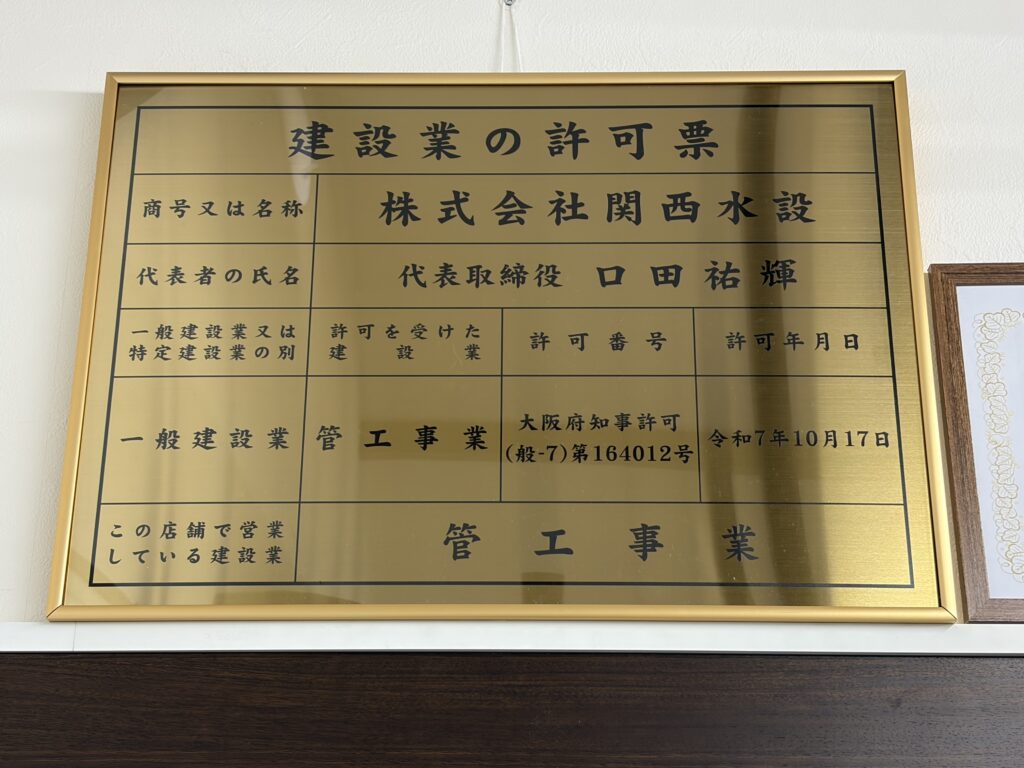 建設業の許可票
商号又は名称
株式会社関西水設
代表者の氏名
代表取締役 口田祐輝
一般建設業又は
特定建設業の別
許可を受けた
建設業
許可番号
許可年月日
一般建設業
管工事業
大阪府知事許可
(般-7)第164012号
令和7年10月17日
この店舗で営業
している建設業
管工事業